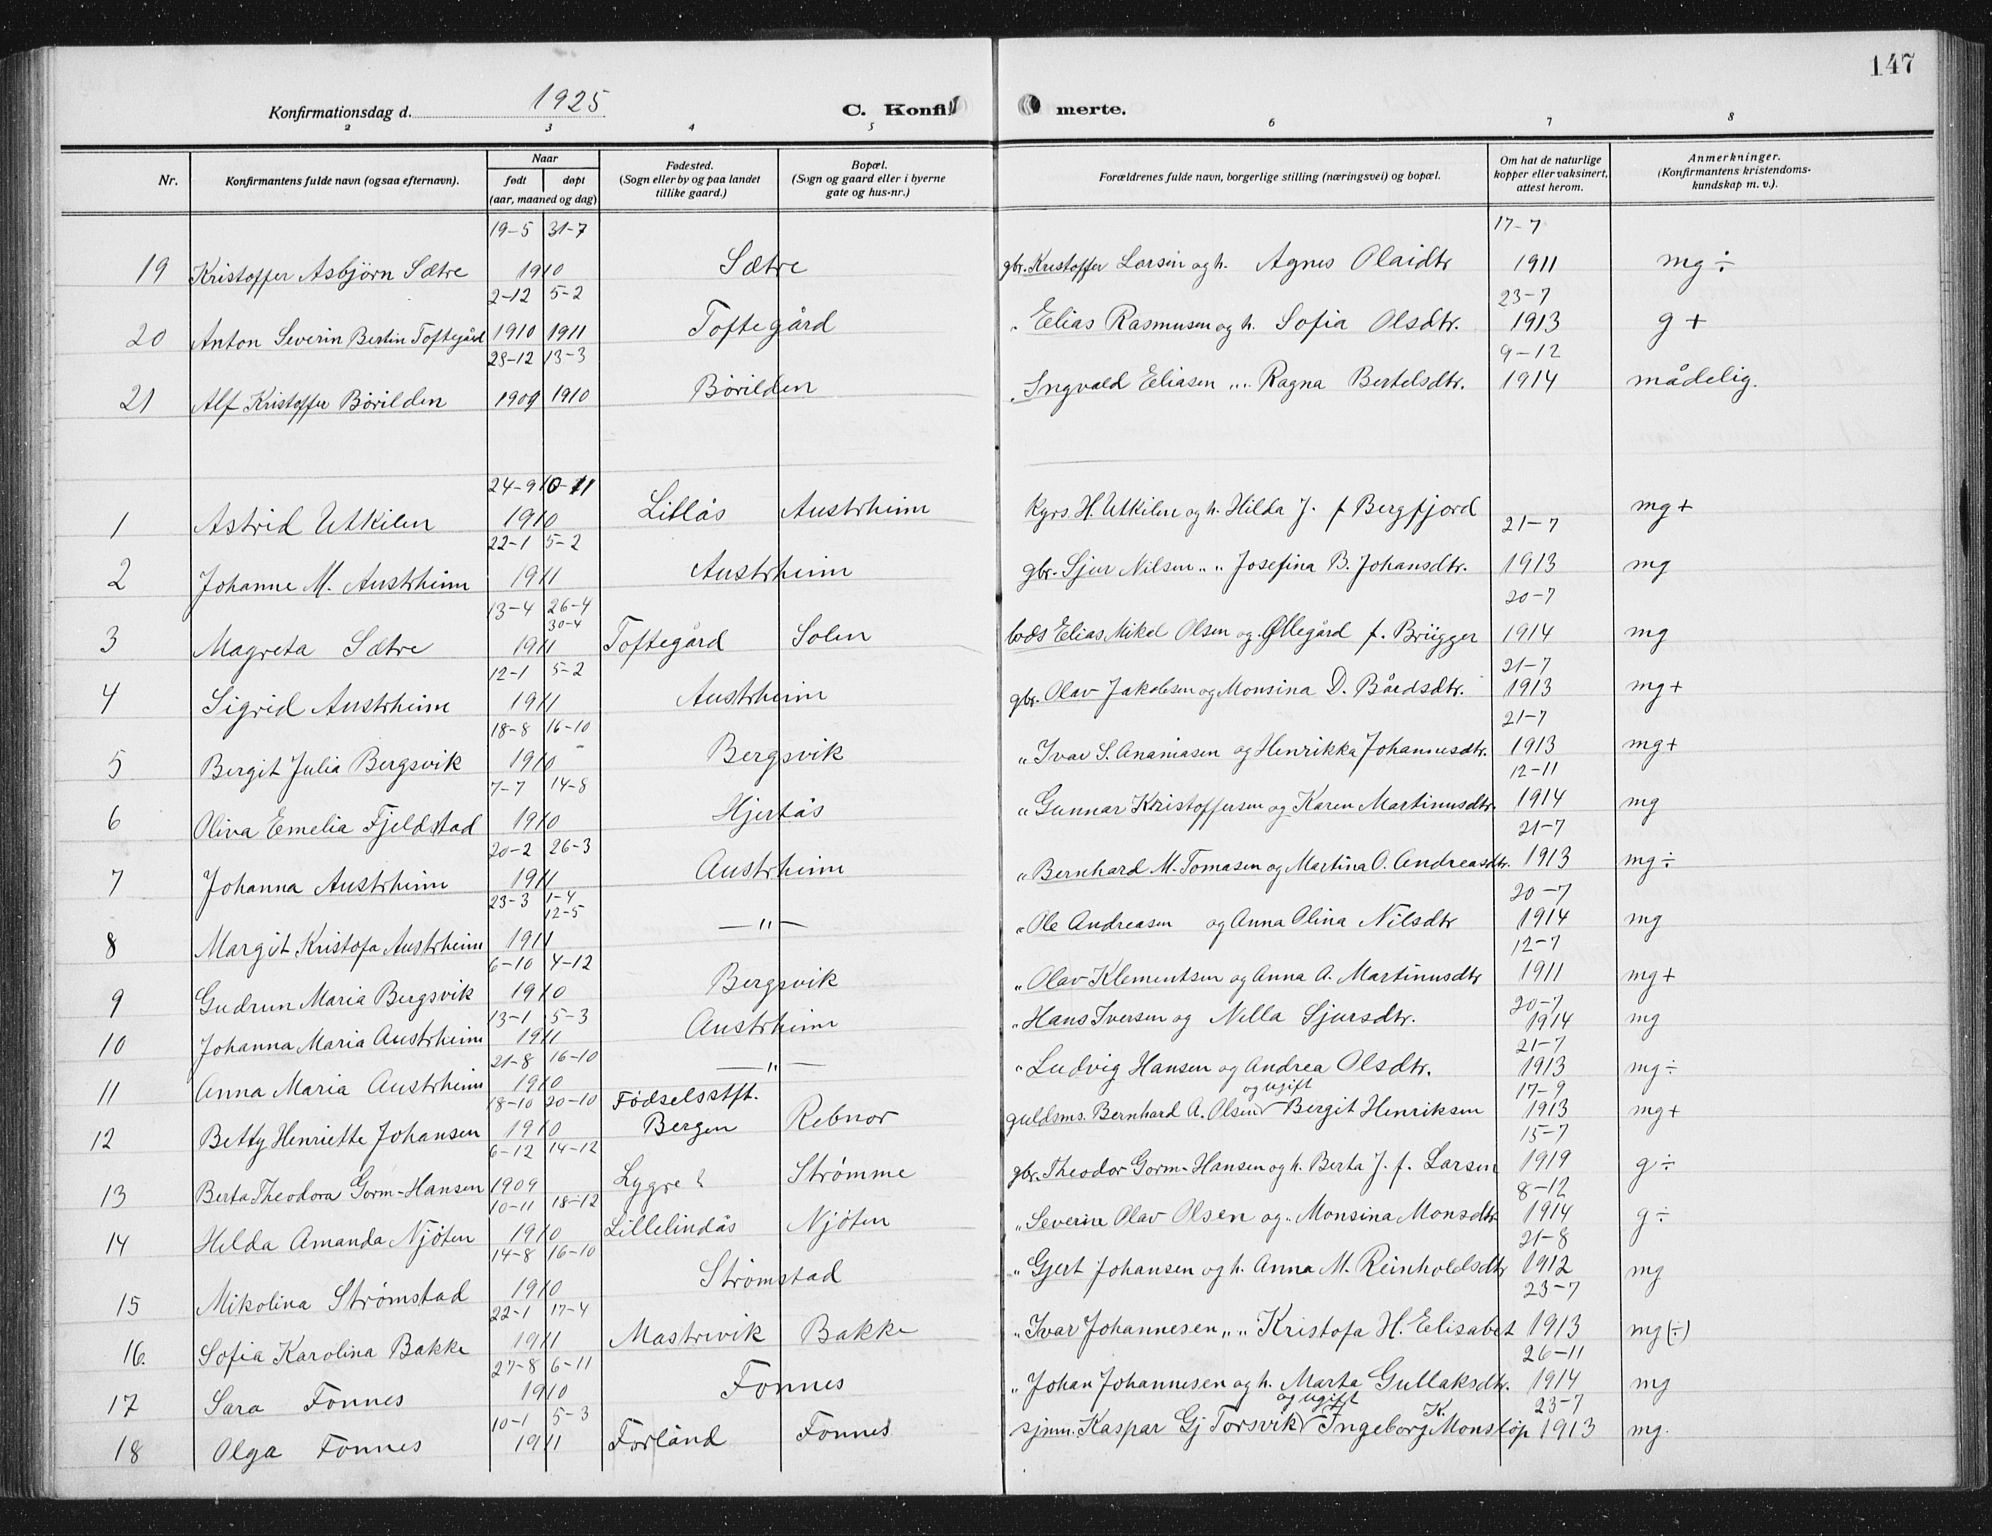 147
Konfirmationsdag d. 1925 C. Konfir merte.
2 3 4 5 6 7 8
Nr. Konfirmantens fulde navn (ogsaa efternavn). Naar født døpt (aar, maaned og dag) Fødested. (Sogn eller by og paa landet tillike gaard.) Bopæl. (Sogn og gaard eller i byerne gate og hus-nr.) Forældrenes fulde navn, borgerlige stilling (næringsvei) og bopæl. Om hat de naturlige kopper eller vaksinert, attest herom. Anmerkninger. (Konfirmantens kristendoms-kundskap m. v.).
19-5 31-7 17-7
19 Kristoffer Asbjørn Sætre 1910 Sætre gbr. Kristoffer Larsen og h. Agnes Olaidtr 1911 mg ÷
2-12 5-2 23-7
20 Anton Severin Bertin Toftegård 1910 1911 Toftegård " Elias Rasmusen og h. Sofia Olsdtr. 1913 g +
28-12 13-3 9-12
21 Alf Kristoffer Börilden 1909 1910 Börilden " Ingvald Eliasen " " Ragna Bertelsdtr. 1914 mådelig.
24-9
1 Astrid Utkilen 1910 Litlås Austrheim Kyrs. H. Utkilen og h. Hilda J. f Bergfjord mg +
22-1 5-2 21-7
2 Johanne M. Austrheim 1911 Austrheim gbr. Sjur Nilsen " " Josefina B. Johansdtr. 1913 mg
13-4 26-4 30-4 20-7
3 Magreta Sætre 1911 Toftegård Solen lods Elias Mikel Olsen og Øllegård f. Brügger 1914 mg
12-1 5-2 21-7
4 Sigrid Austrheim 1911 Austrheim gbr. Olav Jakobsen og Monsina D. Bårdsdtr. 1913 mg +
18-8 16-10 21-7
5 Bergit Julia Bergsvik 1910 Bergsvik " Ivar S. Ananiasen og Henrikka Johannesdtr. 1913 mg +
7-7 14-8 12-11
6 Oliva Emelia Fjeldstad 1910 Hjertås " Gunnar Kristoffersen og Karen Martinusdtr. 1914 mg
20-2 26-3 21-7
7 Johanna Austrheim 1911 Austrheim " Bernhard M. Tomasen og Martina O. Andreasdtr. 1913 mg ÷
23-3 1-4 12-5 20-7
8 Margit Kristofa Austrheim 1911 — " — " Ole Andreasen og Anna Olina Nilsdtr 1914 mg
6-10 4-12 12-7
9 Gudrun Maria Bergsvik 1910 Bergsvik " Olav Klementsen og Anna A. Martinusdtr 1911 mg +
13-1 5-3 20-7
10 Johanna Maria Austrheim 1911 Austrheim " Hans Iversen og Nilla Sjursdtr. 1914 mg
21-8 16-10 21-7
11 Anna Maria Austrheim 1910 — " — " Ludvig Hansen og Andrea Olsdtr. 1913 mg ÷
18-10 20-10 Födselsstft. og ugift 17-9
12 Betty Henriette Johansen 1910 Bergen Rebnor guldsms. Bernhard A. Olsen Bergit Henriksen 1913 mg +
6-12 14-12 15-7
13 Berta Theodora Gorm-Hansen 1909 Lygre Strömme gbr. Theodor Gorm-Hansen og h. Berta J. f. Larsen 1919 g ÷
10-11 18-12 8-12
14 Helda Amanda Njöten 1910 Lillelindås Njöten " Severin Olav Olsen og " Monsina Monsdtr 1914 g ÷
14-8 16-10 21-8
15 Mikolina Strømstad 1910 Strømstad " Gjert Johansen og h. Anna M. Reinholdsdtr 1912 mg
22-1 17-4 23-7
16. Sofia Karolina Bakke 1911 Mastrevik Bakke " Ivar Johannesen " " Kristofa H. Elisabet 1913 mg (÷)
27-8 6-11 26-11
17 Sara Fonnes 1910 Fonnes " Johan Johannesen og h. Marta Gullaksdtr. 1914 mg
10-1 5-3 og ugift K. 23-7
18 Olga Fonnes 1911 Forland Fonnes sjnm. Kaspar Gj Torsvik Ingeborg Monsløp 1913 mg.